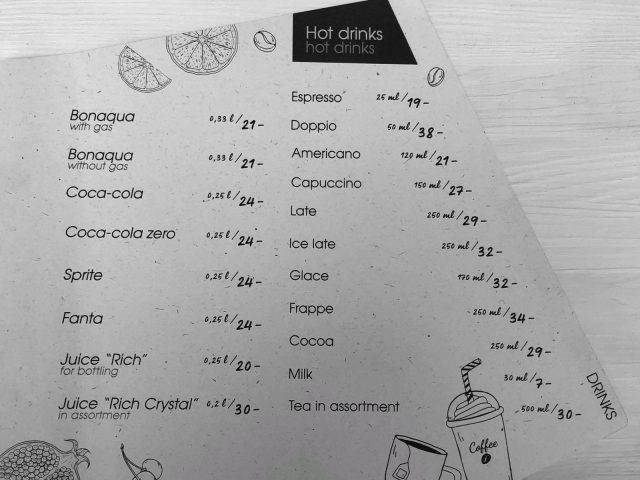 Hot drinks
hot drinks
Bonaqua 0,33 l / 21-
with gas
Bonaqua 0,33 l / 21-
without gas
Coca-cola 0,25 l / 24-
Coca-cola zero 0,25 l / 24-
Sprite 0,25 l / 24-
Fanta 0,25 l / 24-
Juice "Rich" 0,25 l / 20-
for bottling
Juice "Rich Crystal" 0,2 l / 30-
in assortment
Espresso 25 ml / 19-
Doppio 50 ml / 38-
Americano 120 ml / 21-
Capuccino 150 ml / 27-
Late 250 ml / 29-
Ice late 250 ml / 32-
Glace 170 ml / 32-
Frappe 250 ml / 34-
Cocoa 250 ml / 29-
Milk 30 ml / 7-
Tea in assortment 500 ml / 30-
DRINKS
Coffee